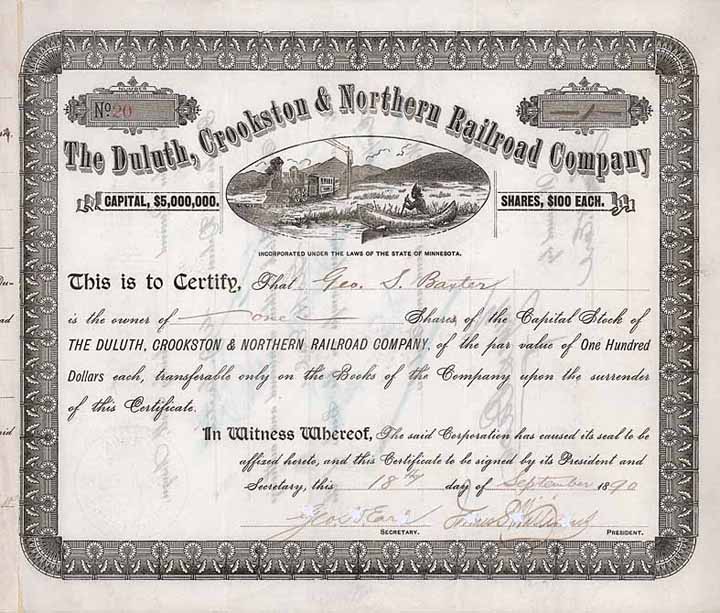 NUMBER
No. 20
SHARES
1
The Duluth, Crookston & Northern Railroad Company
CAPITAL, $5,000,000.
SHARES, $100 EACH.
INCORPORATED UNDER THE LAWS OF THE STATE OF MINNESOTA.
This is to Certify, That Geo. S. Baxter
is the owner of one Shares of the Capital Stock of
THE DULUTH, CROOKSTON & NORTHERN RAILROAD COMPANY, of the par value of One Hundred
Dollars each, transferable only on the Books of the Company upon the surrender
of this Certificate.
In Witness Whereof, The said Corporation has caused its seal to be
affixed hereto, and this Certificate to be signed by its President and
Secretary, this 18th day of September 1890
SECRETARY.
PRESIDENT.